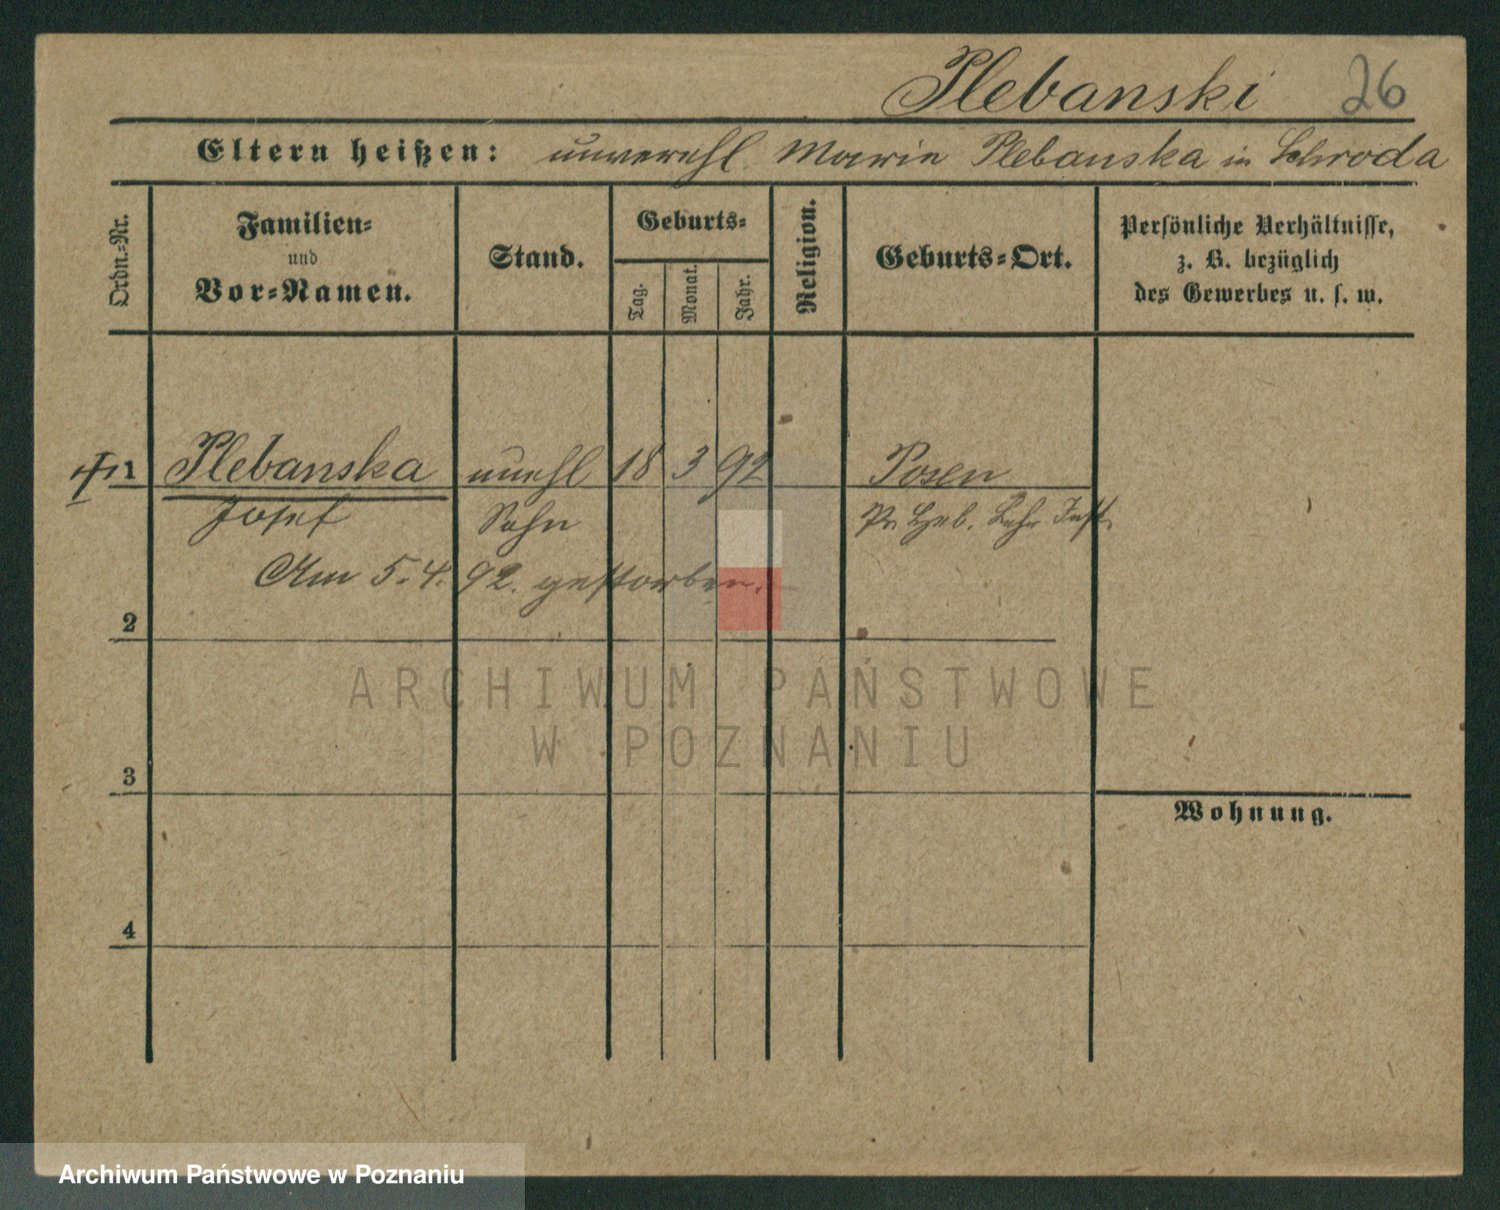 Plebanski 26
Eltern heißen: unverehl. Marie Plebanska in Schroda
Ordn.-Nr.
Familien- und Vor-Namen.
Stand.
Geburts-
Tag.
Monat.
Jahr.
Religion.
Geburts-Ort.
Persönliche Verhältnisse,
z. B. bezüglich
des Gewerbes u. s. w.
1 Plebanska unehl 18 3 92 Posen
Josef Sohn Pr. Heb. Lehr Inst.
Am 5. 4. 92. gestorben.
2
3
Wohnung.
4
ARCHIWUM PAŃSTWOWE
W POZNANIU
Archiwum Państwowe w Poznaniu